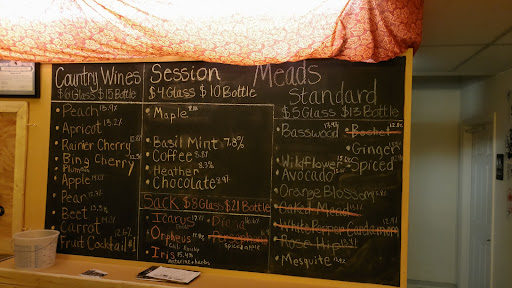 Country Wines
$6 Glass $15 Bottle
Peach 13.9%
Apricot 13.2%
Rainier Cherry
Bing Cherry
Plum
Apple
Pear
Beet
Carrot
Fruit Cocktail #1
Session Meads
$4 Glass $10 Bottle
Maple
Basil Mint 7.8%
Coffee
Heather
Chocolate
Sack $8 Glass $21 Bottle
Icarus
Orpheus
Iris 15.4%
nectarine + herbs
Standard
$5 Glass $13 Bottle
Basswood
Bochet
Ginger
Wildflower
Spiced
Avocado
Orange Blossom
Oaked Mead
White Pepper Cardamom
Rose Hip
Mesquite